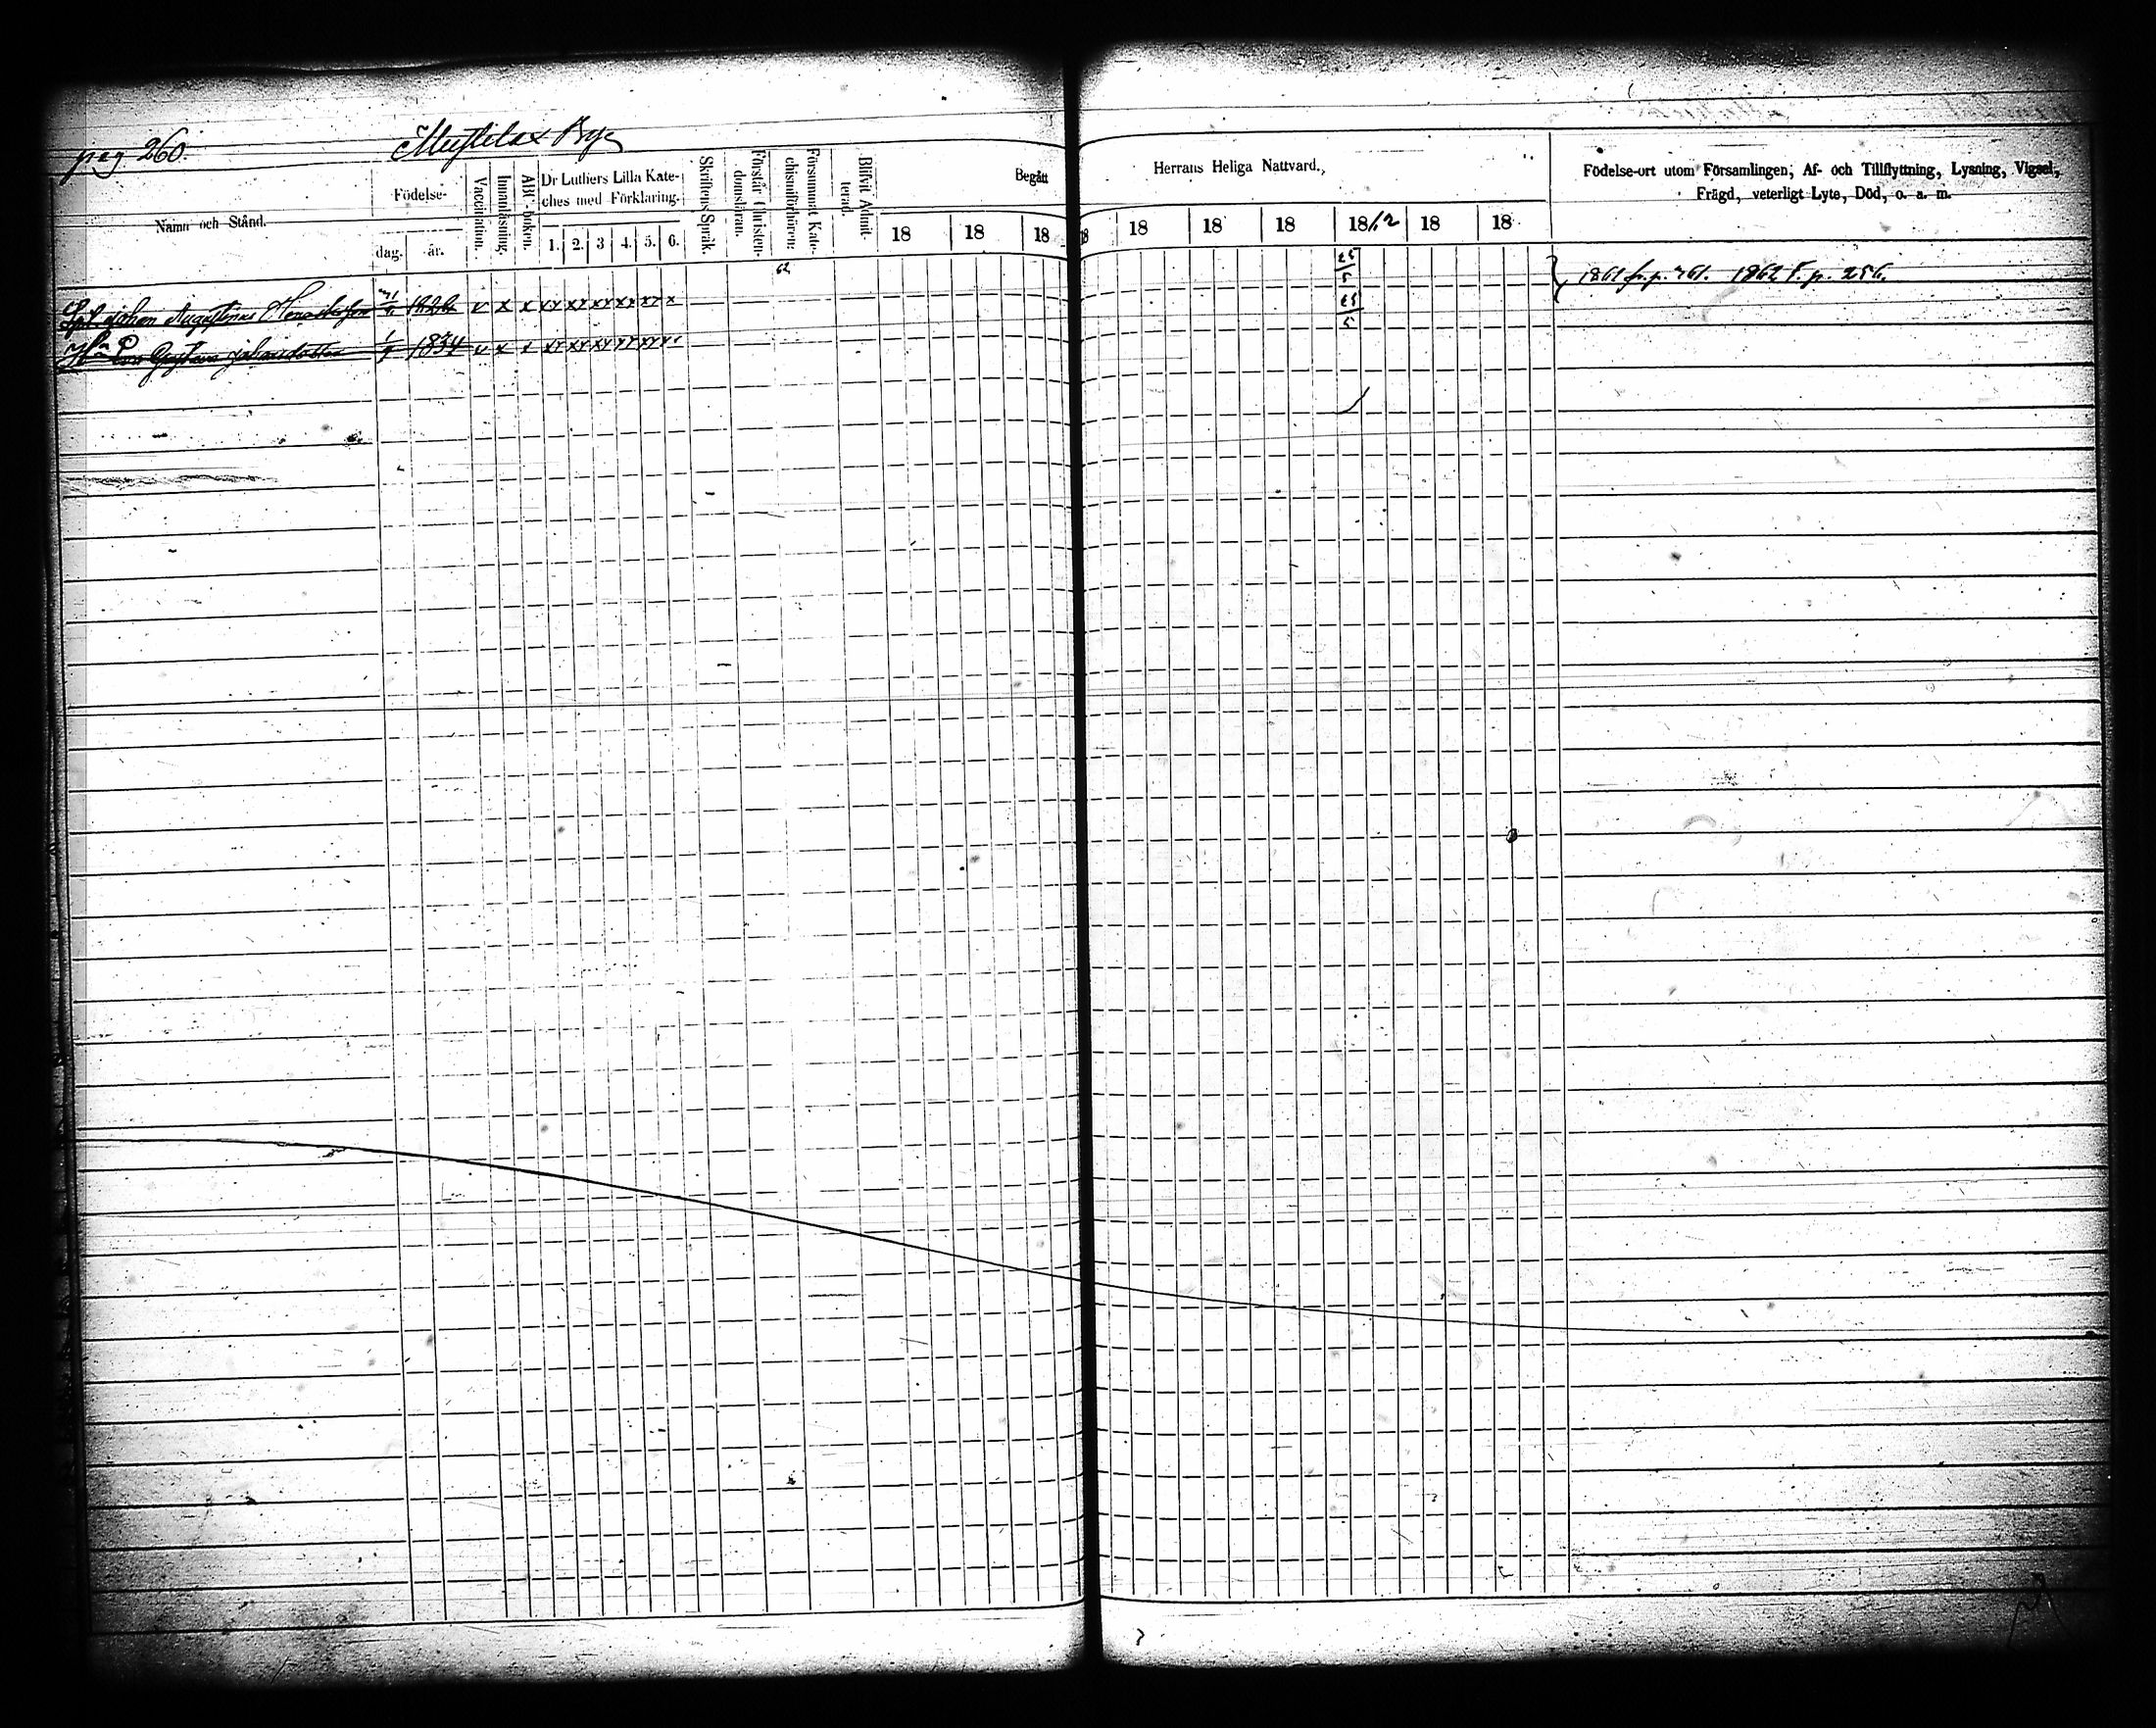 pag 260.
Mustilax By
Namn och Stånd.
Födelse-
dag.
år.
Vaccination.
Innanläsning.
ABC-boken.
Dr Luthers Lilla Kate-
ches med Förklaring.
1. 2. 3 4. 5. 6.
Skriftens Språk.
Förstår Christen-
domsläran.
Försummat Kate-
chismiförhören:
Blifvit Admit-
terad.
Begått
18 18 18
Herrans Heliga Nattvard.,
18 18 18 18 1862 18 18
Födelse-ort utom Församlingen, Af- och Tillflyttning, Lysning, Vigsel,
Frägd, veterligt Lyte, Död, o. a. m.
62
Johan Augustinus v x x xx xx xx xx xx x 25/5 1861 fr. p. 1862 T. p. 256.
Eva Johansdotter 1834 v x x xx xx xx xx xx 25/5